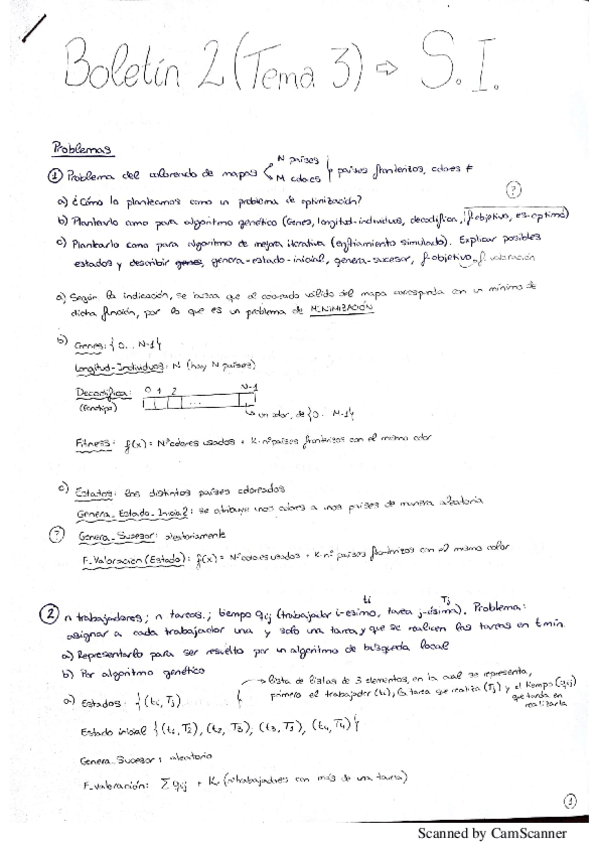 Boletín 2 (Tema 3) ⇒ S.I.
Problemas
① Problema del coloreado de mapas < N países M colores } países fronterizos, colores ≠
a) ¿Cómo lo planteamos como un problema de optimización?
(?)
b) Plantearlo como para algoritmo genético (Genes, longitud-individuos, decodifica, f-objetivo, es-óptimo)
c) Plantearlo como para algoritmo de mejora iterativa (enfriamiento simulado). Explicar posibles
estados y describir genes, genera-estado-inicial, genera-sucesor, f-objetivo f. valoración
a) Según la indicación, se busca que el coloreado válido del mapa corresponda con un mínimo de
dicha función, por lo que es un problema de MINIMIZACIÓN
b) Genes: {0...M-1}
Longitud-Individuos: N (hay N países)
Decodifica: 0 1 2 N-1
(Fenotipo) ... un color, de {0... M-1}
Fitness: f(x) = Nº colores usados + K·nº países fronterizos con el mismo color
c) Estados: los distintos países coloreados
Genera_Estado_Inicial: se atribuyen unos colores a unos países de manera aleatoria
(?) Genera_Sucesor: aleatoriamente
F_Valoración (Estado): f(x) = Nº colores usados + K·nº países fronterizos con el mismo color
ti Tj
② n trabajadores; n tareas; tiempo gij (trabajador i-ésimo, tarea j-ésima). Problema:
asignar a cada trabajador una y solo una tarea, y que se realicen las tareas en t min.
a) Representarlo para ser resuelto por un algoritmo de búsqueda local
b) Por algoritmo genético
lista de listas de 3 elementos, en la cual se representa,
primero el trabajador (ti), la tarea que realiza (Tj) y el tiempo (gij)
que tarda en
realizarla
a) Estados: {(ti, Tj) {
Estado inicial {(t1, T2), (t2, T3), (t3, T3), (t4, T4)}
Genera_Sucesor: aleatorio
F_valoración: Σ gij + K· (nº trabajadores con más de una tarea)
①
Scanned by CamScanner